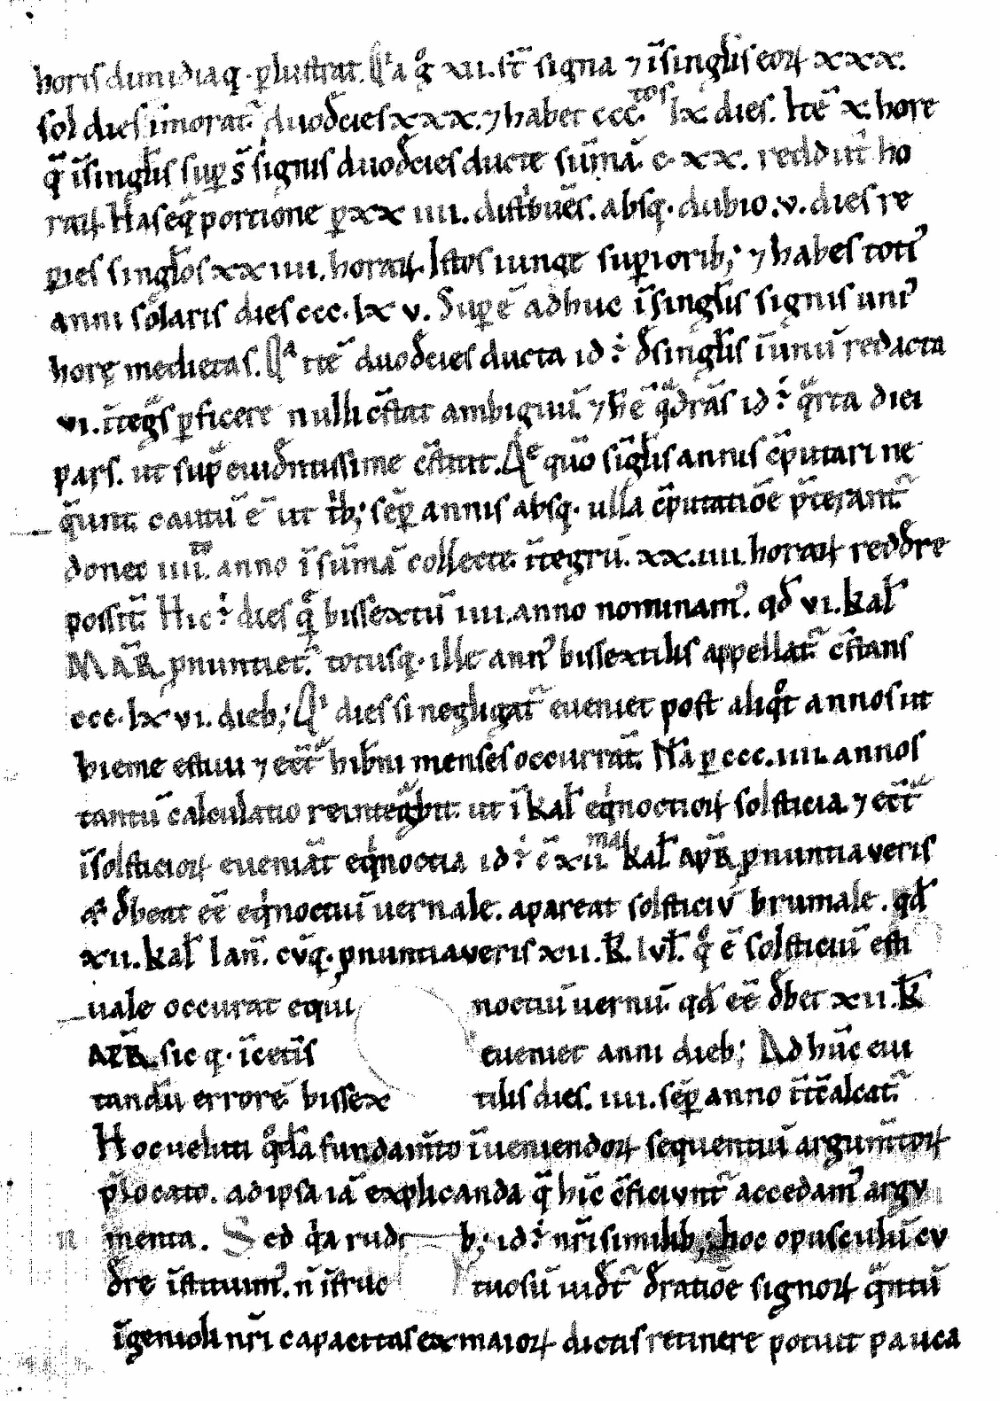 horis dimidiaq; ꝑlustrat. Q̇a g̊ xii. st̄ signa ⁊ ī singl̄is eoꝝ xxx.
sol dies īmorat᷑ duodēcies xxx. ⁊ habet ccc.tos lx dies. Itē x hore
q̄ ī singl̄is suꝑs̄ signis duodēcies ducte sūmā c. xx. reddūt ho
raꝝ Has eq̄ portione ꝑ xx iiii. distb̄uēs. absq; dubio. v. dies re
ꝑies singl̄os xx iiii. horaꝝ. Istos iunge suꝑiorib; ⁊ habes toti᷒
anni solaris dies ccc. lx v. Suꝑ ē adhuc ī singl̄is signis uni᷒
horę medietas. Qᵃ ttē duodēcies ducta id ÷ d̄ singl̄is ī unū redacta
vi. īteg̃s ꝑficere nulli c̄stat ambiguū. ⁊ hē q̈drās id ÷ q̈rta diei
pars. ut sup̄ euidn̄tissime c̄stitit. Qᵉ quō sigl̄is annis c̄putari ne
q̄unt cautū ē ut tb̄; seꝑ annis absq; ulla c̄putatiōe p̄terant᷑
donec iiii.to anno ī sūmā collecte ītegrū. xx. iiii. horaꝝ redd̄re
possit᷑ Hic ÷ dies q̊ bissextū iiii. anno nominam᷒. qd̄ vi. kal̄
MAR̄ ꝓnuntiet᷑. totusq; ille ann᷒ bissextilis appellat᷑ c̄stans
ccc. lx vi. dieb; Qⁱ dies si negligat᷑ eueniet post aliq̊t annos ut
hieme estiui ⁊ ecc̄ hib̄ni menses occurrāt. Nā ꝑ ccc. iiii. annos
tantū calculatio reintegͣbit. ut ī kal̄ eqⁱnoctioꝝ solsticia ⁊ ecc̄
ī solsticioꝝ eueniāt eqⁱnoctia id ÷ ē xii kal̄ APR̄ ꝓnuntia veris
qͣ d̄beat eē eqⁱnoctiū uernale. apareat solsticiū brumale. qd̄
xii. kal̄ Ian̄. cūq; ꝓnuntia veris xii. k̄. Iul̄. q̊ ē solsticiū esti
uale occurat equi noctiū uernū. qd̄ eē d̄bet xii. k̄
APR̄. sic q; ī cet̄is eueniet anni dieb; Ad hūc eui
tandū errorē bissex tilis dies. iiii. seꝑ anno īt̄calcat᷑.
Hoc ueluti q̊dā fundam̄to īueniendoꝝ sequentiū argum̄toꝝ
p̄locato. ad ipsa iā explicanda q̄ hīc c̄ficiunt᷑ accedam᷒ argu
menta. Sed qⁱa rudi b; id ÷ nr̄i similib; hoc opusculū cu
d̄re īstituim᷒. n̄ īstruc tuosū uidt᷑ d̄ ratiōe signoꝝ q̈ntū
īgenioli nr̄i capacitas ex maioꝝ dictis retinere potuit pauca